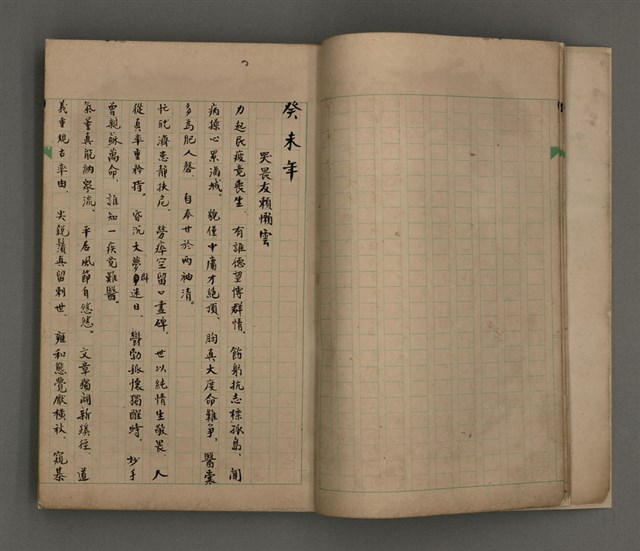 癸未年
哭畏友賴懶雲
力起民疲竟喪生、有誰德望博群情、飭躬抗志標孤島、閒
病操心累滿城。貌僅中庸才絕頂、胸真大度命難爭、醫業
多為肥人磬、自奉甘於兩袖清。
忙脫濟惠靜扶危、勞瘁空留口盡碑、世以純情生敬畏、人
從真率重矜持。容沉大夢群迷日、鬱勃孤懷獨醒時、妙手
曾親蘇萬命、誰知一疾竟難醫。
氣量真能納眾流、平居風節自悠悠。文章獨闢新蹊徑、道
義重規古率由、尖銳鬚真留刺世、雍和態覺厭橫秋、窺暴